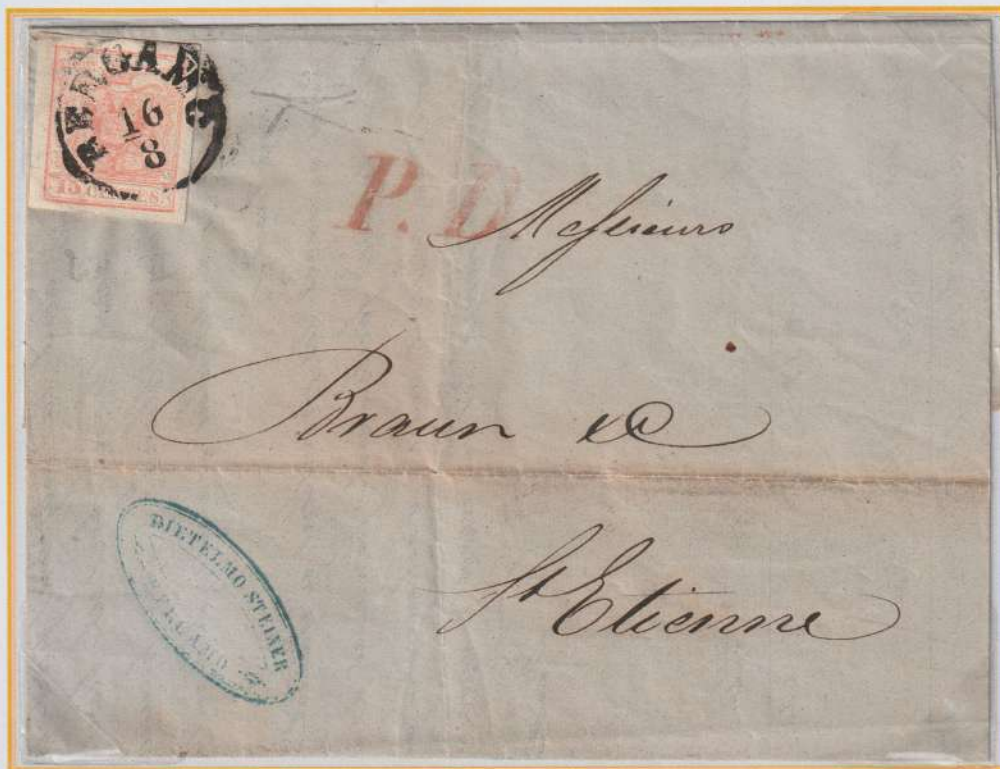 BERGAMO
16
8
15 CENTES.
P. D
Messieurs
Braun et C
St Etienne
DIETELMO STEINER
BERGAMO